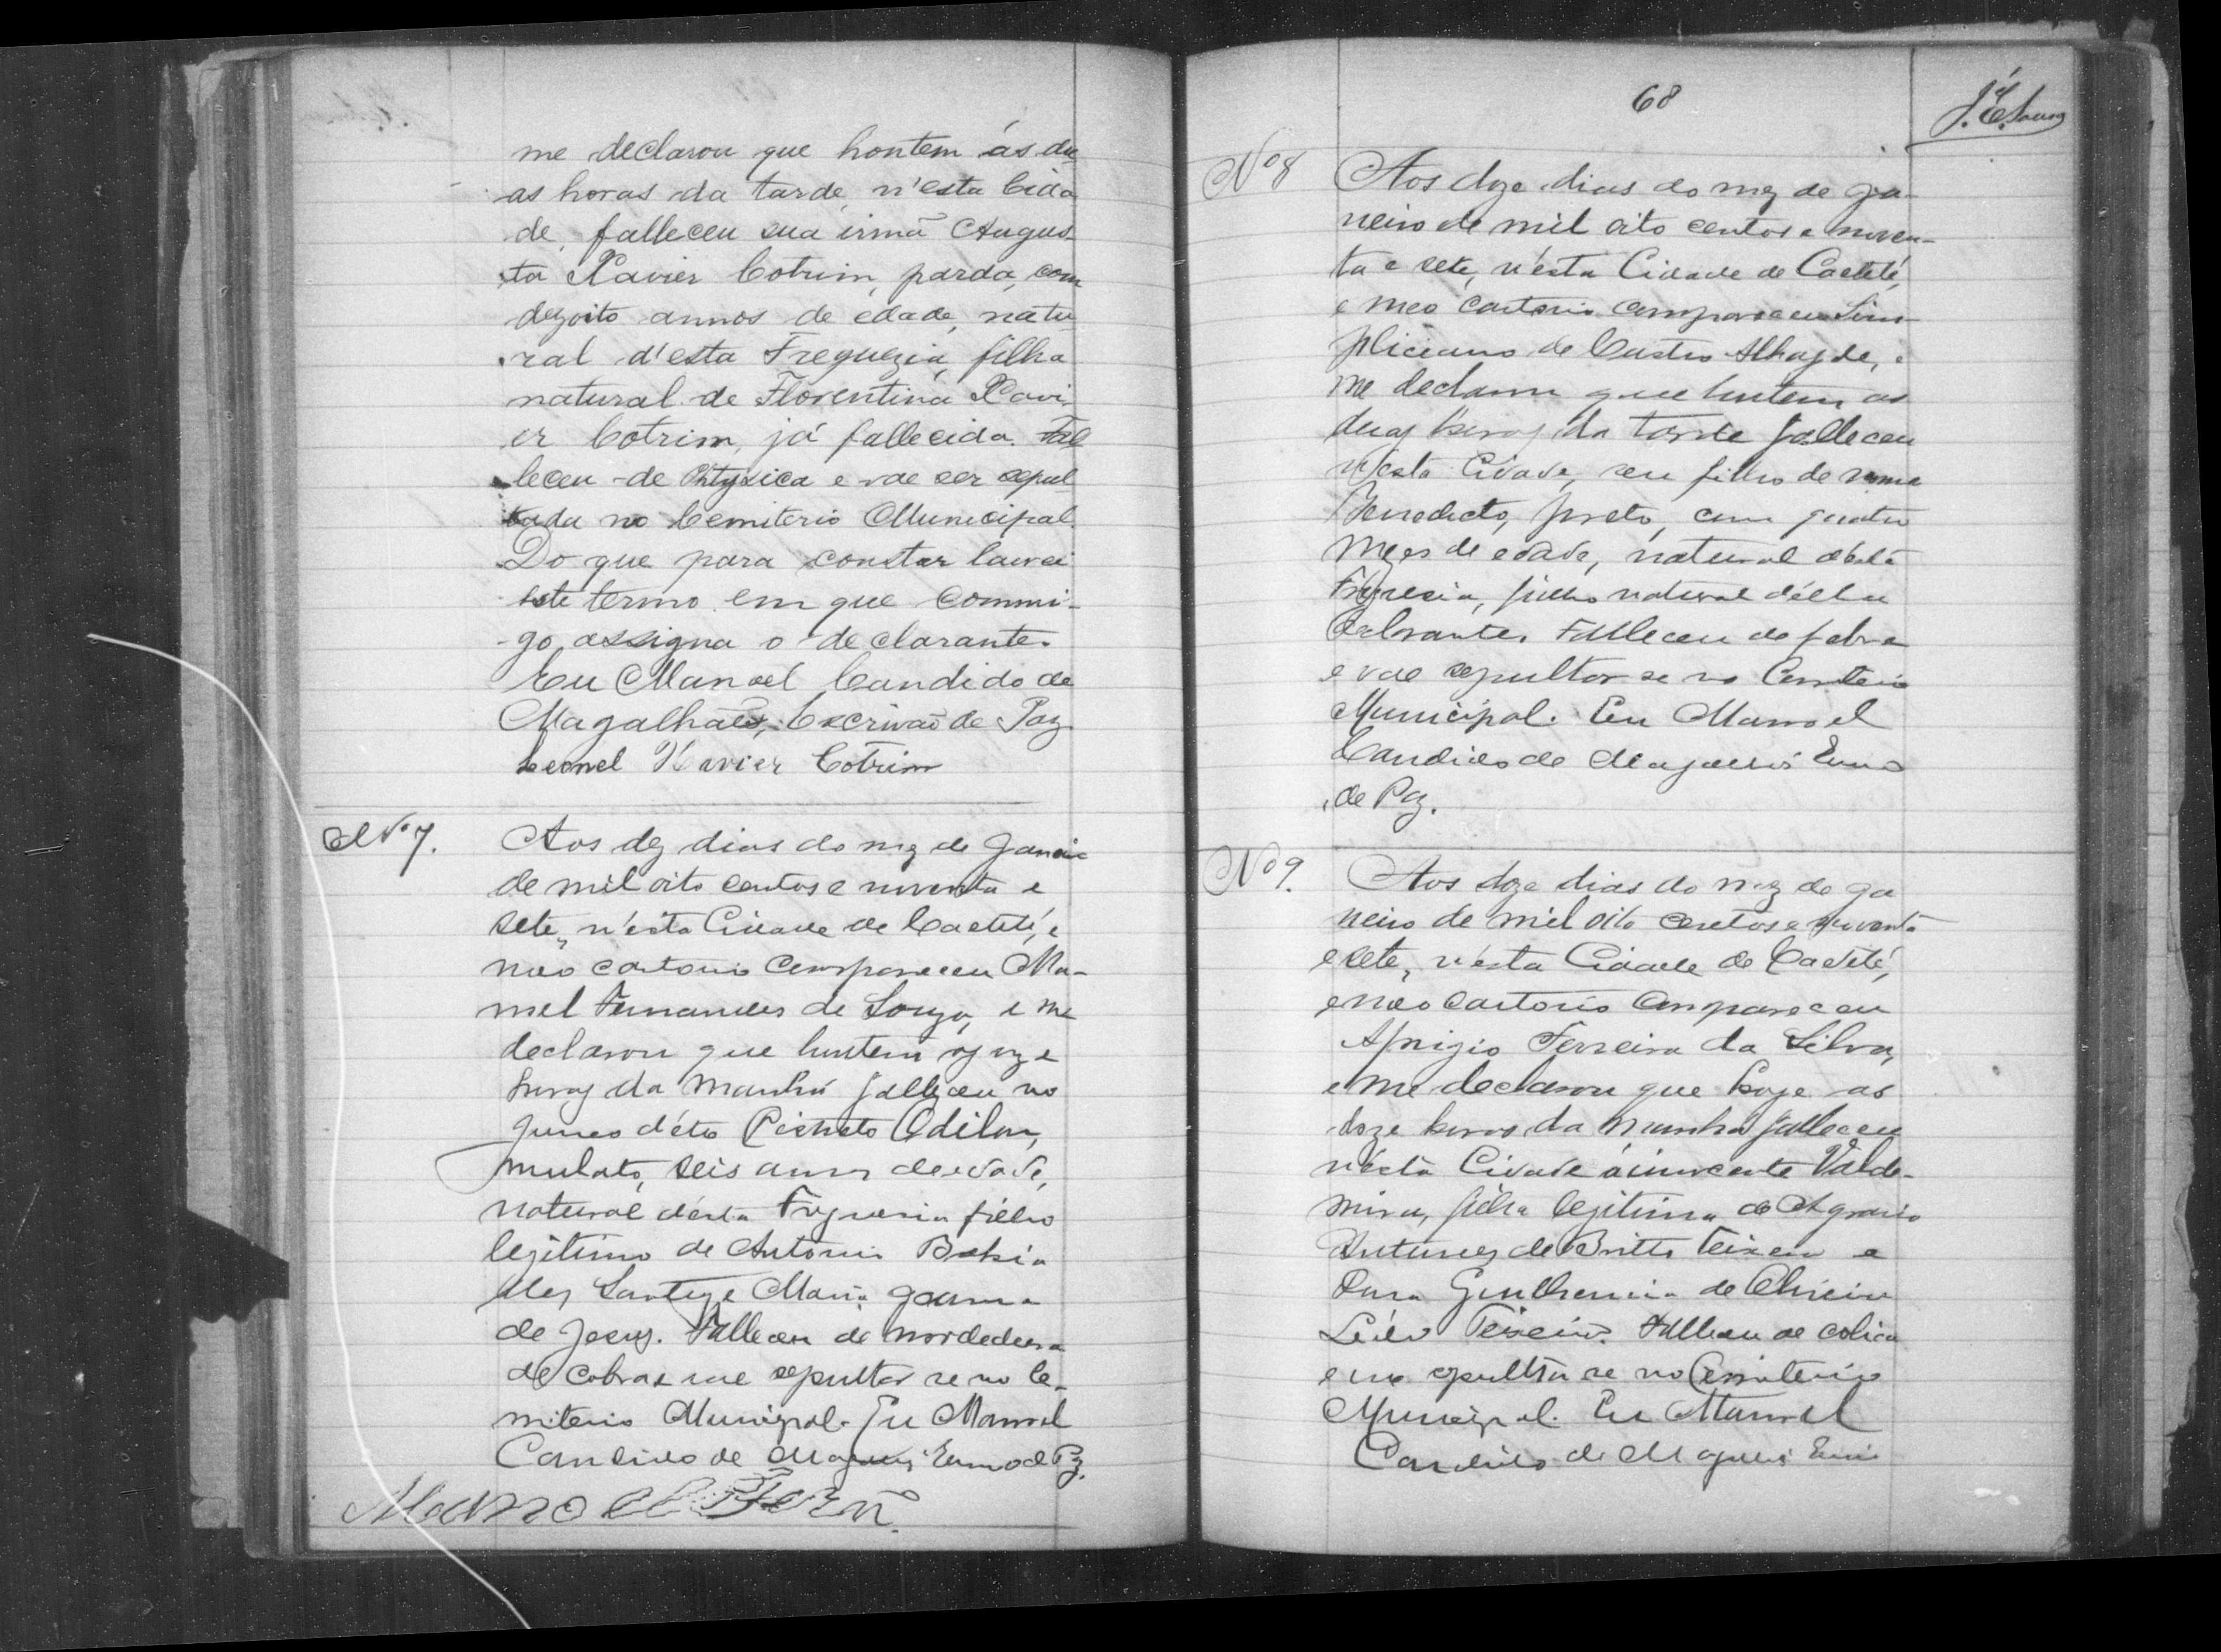 me declarou que hontem ás du
as horas da tarde, n'esta Cida
de, falleceu sua irmã Augus-
ta Xavier Cotrim, parda, com
dezoito annos de edade, natu
ral d'esta Freguezia, filha
natural de Florentina Xavi
er Cotrim, já fallecida. Fal
leceu de Phtysica e vae ser sepul
tada no Cemiterio Municipal.
Do que para constar lavrei
este termo em que commi-
go assigna o declarante.
Eu Manoel Candido de
Magalhães, Escrivão de Paz
Leonel Xavier Cotrim
Nº 7.
Aos dez dias do mez de Janeiro
de mil oito centos e noventa e
sete, n'esta Cidade de Caeteté, e
meo cartorio compareceu Ma-
noel Fernandes de Souza, e me
declarou que hontem as onze
horas da manhã falleceu no
d'éto Odilon,
mulato, seis annos de edade,
natural d'esta Freguesia filho
legitimo de Antonio Bahia
dos Santos e Maria Joanna
de Jesus. Falleceu de mordedura
de cobra e vae sepultar se no Ce-
miterio Municipal. Eu Manoel
Candido de Magalhães Escrivão de Paz.
Manoel
68
J. E. Souza
Nº 8
Aos doze dias do mez de Ja-
neiro de mil oito centos e noven-
ta e sete, n'esta Cidade de Caeteté,
e meo cartorio compareceu Sim-
pliciano de Castro Athayde, e
me declarou que hontem as
duas horas da tarde falleceu
n'esta Cidade, seu filho de nome
Benedicto, preto, com quatro
mezes de edade, natural d'esta
Freguesia, filho natural d'elle
declarante. Falleceu de febre
e vae sepultar se no Cemiterio
Municipal. Eu Manoel
Candido de Magalhães Escrivão
de Paz.
Nº 9.
Aos doze dias do mez de Ja
neiro de mil oito centos e noventa
e sete, n'esta Cidade de Caeteté,
e meo cartorio compareceu
Aprigio Ferreira da Silva,
e me declarou que hoje as
doze horas da manhã falleceu
n'esta Cidade a innocente Valde-
mira, filha legitima de
Antunes de Britto Teixeira e
Dona Guilhermina de Oliveira
Teixeira. Falleceu de colica
e vae sepultar se no Cemiterio
Municipal. Eu Manoel
Candido de Magalhães Escrivão